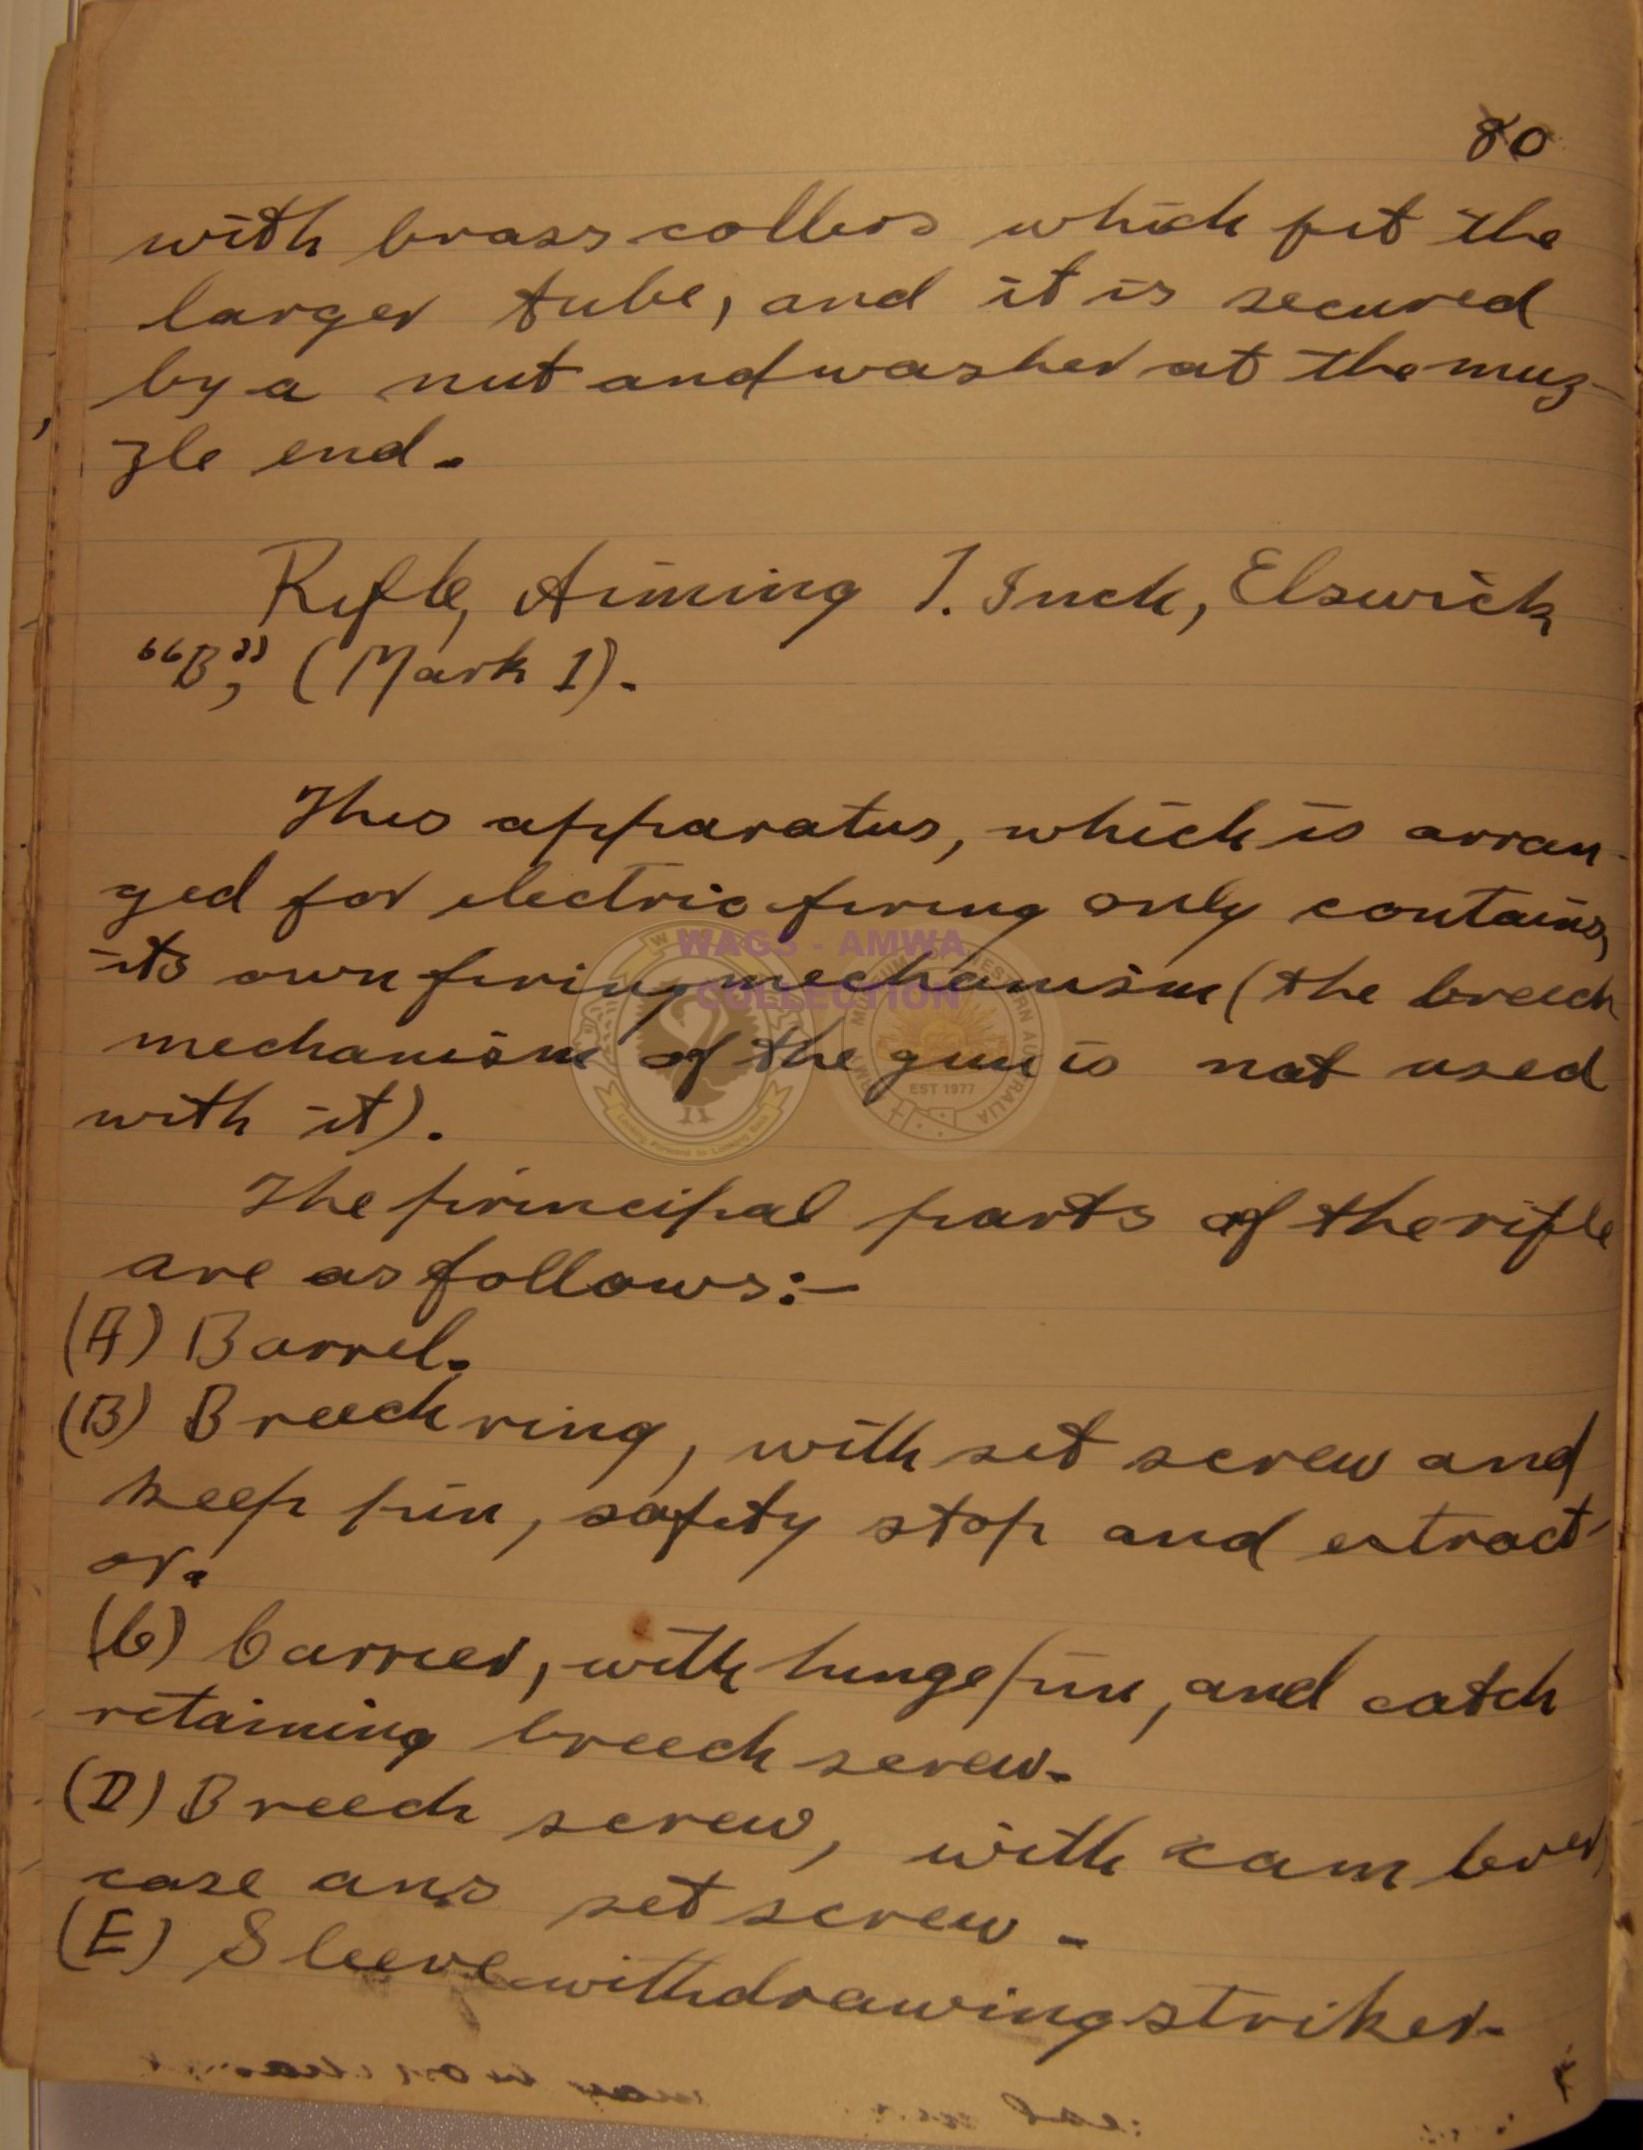 80
with brass collers which fit the
larger tube, and it is secured
by a nut and washer at the muz-
zle end.
Rifle, Aiming 1. Inch, Elswick
"B," (Mark 1).
This apparatus, which is arran-
ged for electric firing only contains,
its own firing mechanism (the breech
mechanism of the gun is not used
with it).
The principal parts of the rifle
are as follows:-
(A) Barrel.
(B) Breech ring, with set screw and
keep pin, safety stop and extract-
or.
(C) Carrier, with hinge pin, and catch
retaining breech screw.
(D) Breech screw, with cam lever,
case and set screw.
(E) Sleeve withdrawing striker.
WAGS - AMWA
COLLECTION
EST 1977
Looking Forward to Looking Back